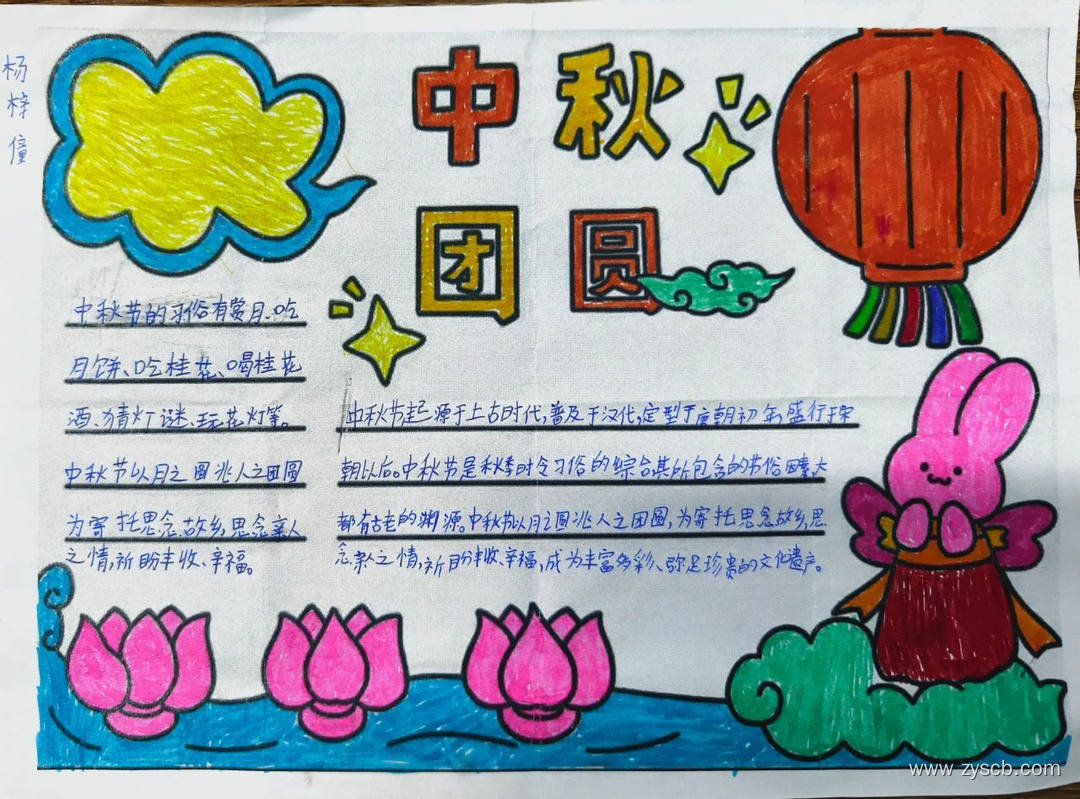 杨
梓
僮
中秋
团圆
中秋节的习俗有赏月、吃
月饼、吃桂花、喝桂花
酒、猜灯谜、玩花灯等。
中秋节以月之圆兆人之团圆
为寄托思念故乡,思念亲人
之情,祈盼丰收、幸福。
中秋节起源于上古时代,普及于汉代,定型于唐朝初年,盛行于宋
朝以后。中秋节是秋季时令习俗的综合其所包含的节俗因素大
都有古老的渊源。中秋节以月之圆兆人之团圆,为寄托思念故乡,思
念亲人之情,祈盼丰收、幸福,成为丰富多彩、弥足珍贵的文化遗产。
www.zyscb.com